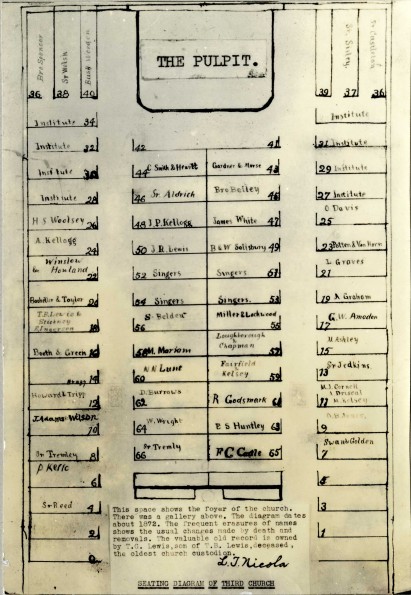 THE PULPIT.
Bro Spencer
Sr Welch
36 38 40
39 37 36
Institute 34
Institute
Institute 32
42
41
31 Institute
Institute 30
44 C Smith & Hewitt
Gardner & Morse 43
29 Institute
Institute 28
46 Sr Aldrich
Bro Bailey 45
27 Institute
H S Woolsey 26
48 J.P. Kellogg
James White 47
O Davis
25
A. Kellogg
24
50 J.R. Lewis
B & W Salisbury 49
23 Patten & Van Horn
Winslow
Howland
22
52 Singers
Singers 51
L Graves
21
& Taylor 20
54 Singers
Singers. 53
19 A Graham
T.B. Lewis &
Stickney
18
S. Belden
56
Miller & Lockwood
55
G. W. Amadon
17
Booth & Green 16
58 M. Mariom
Loughborough
Chapman
57
M. Ashley
15
14
N N Lunt
60
Fairfield
Kelsey 59
Sr Jedkins
13
Howard & Tripp
12
D. Burrows
62
R Godsmark 61
M.J. Cornell
11
J. Adams Wilson
10
W. Wright
64
B S Huntley 63
9
Sr Tremley 8
Sr Tremly
66
F C Castle 65
Swan & Golden
7
6
5
Sr Reed 4
3
2
1
This space shows the foyer of the church.
There was a gallery above. The diagram dates
about 1872. The frequent erasures of names
shows the usual changes made by death and
removals. The valuable old record is owned
by T.G. Lewis, son of T.B. Lewis, deceased,
the oldest church custodian.
L. T. Nicola
SEATING DIAGRAM OF THIRD CHURCH